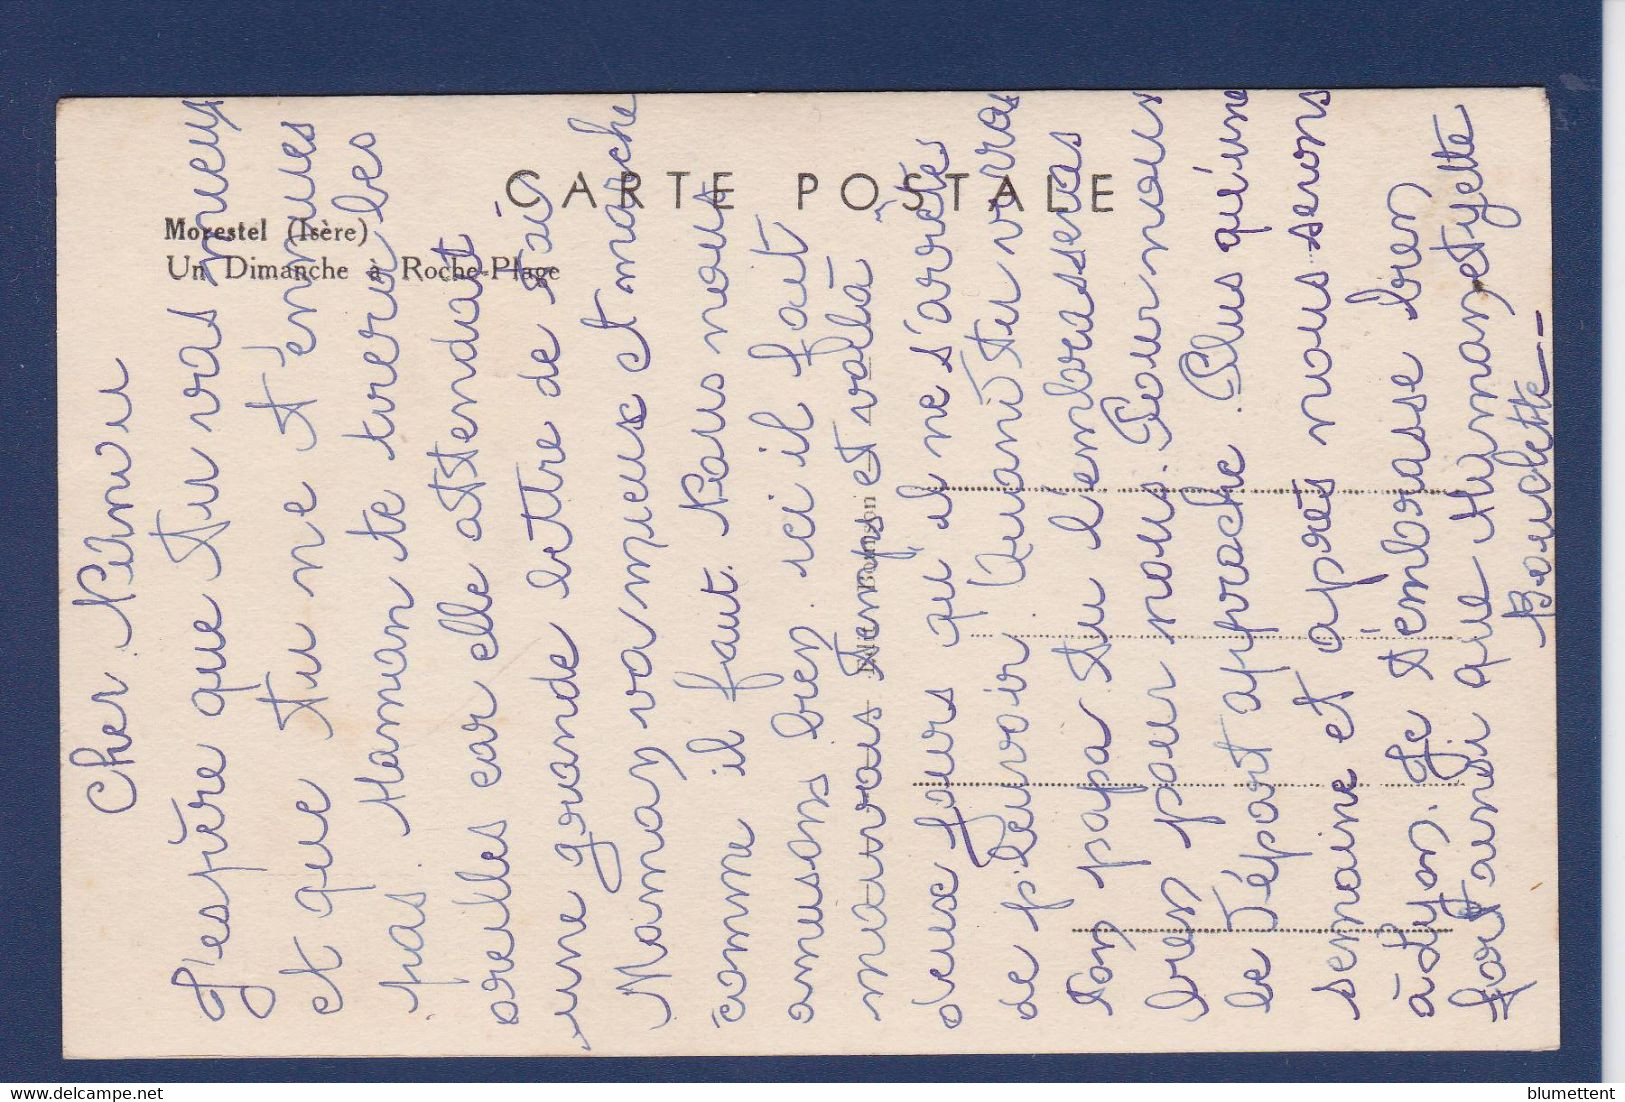 CARTE POSTALE
Morestel (Isère)
Un Dimanche à Roche-Plage
Cher
J'espère que tu vas mieux
et que tu ne t'ennuies
pas. Maman te tirera les
oreilles car elle attendait
une grande lettre de toi
Maman va mieux et marche
comme il faut. Nous nous
amusons bien. ici il fait
mauvais temps et voilà
deux jours qu'il ne s'arrête
de pleuvoir. Quand tu verra
ton papa tu l'embrasseras
bien pour nous. Pour nous
le départ aproche. Plus qu'une
semaine et après nous serons
à Lyon. Je t'embrasse bien
fort ainsi que Maman
blumettent